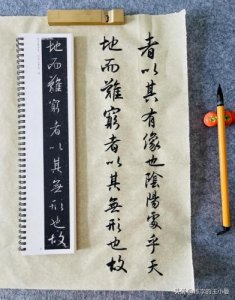 者以其有像也陰陽處乎天
地而難窮者以其無形也故
地而難窮者以其無形也故